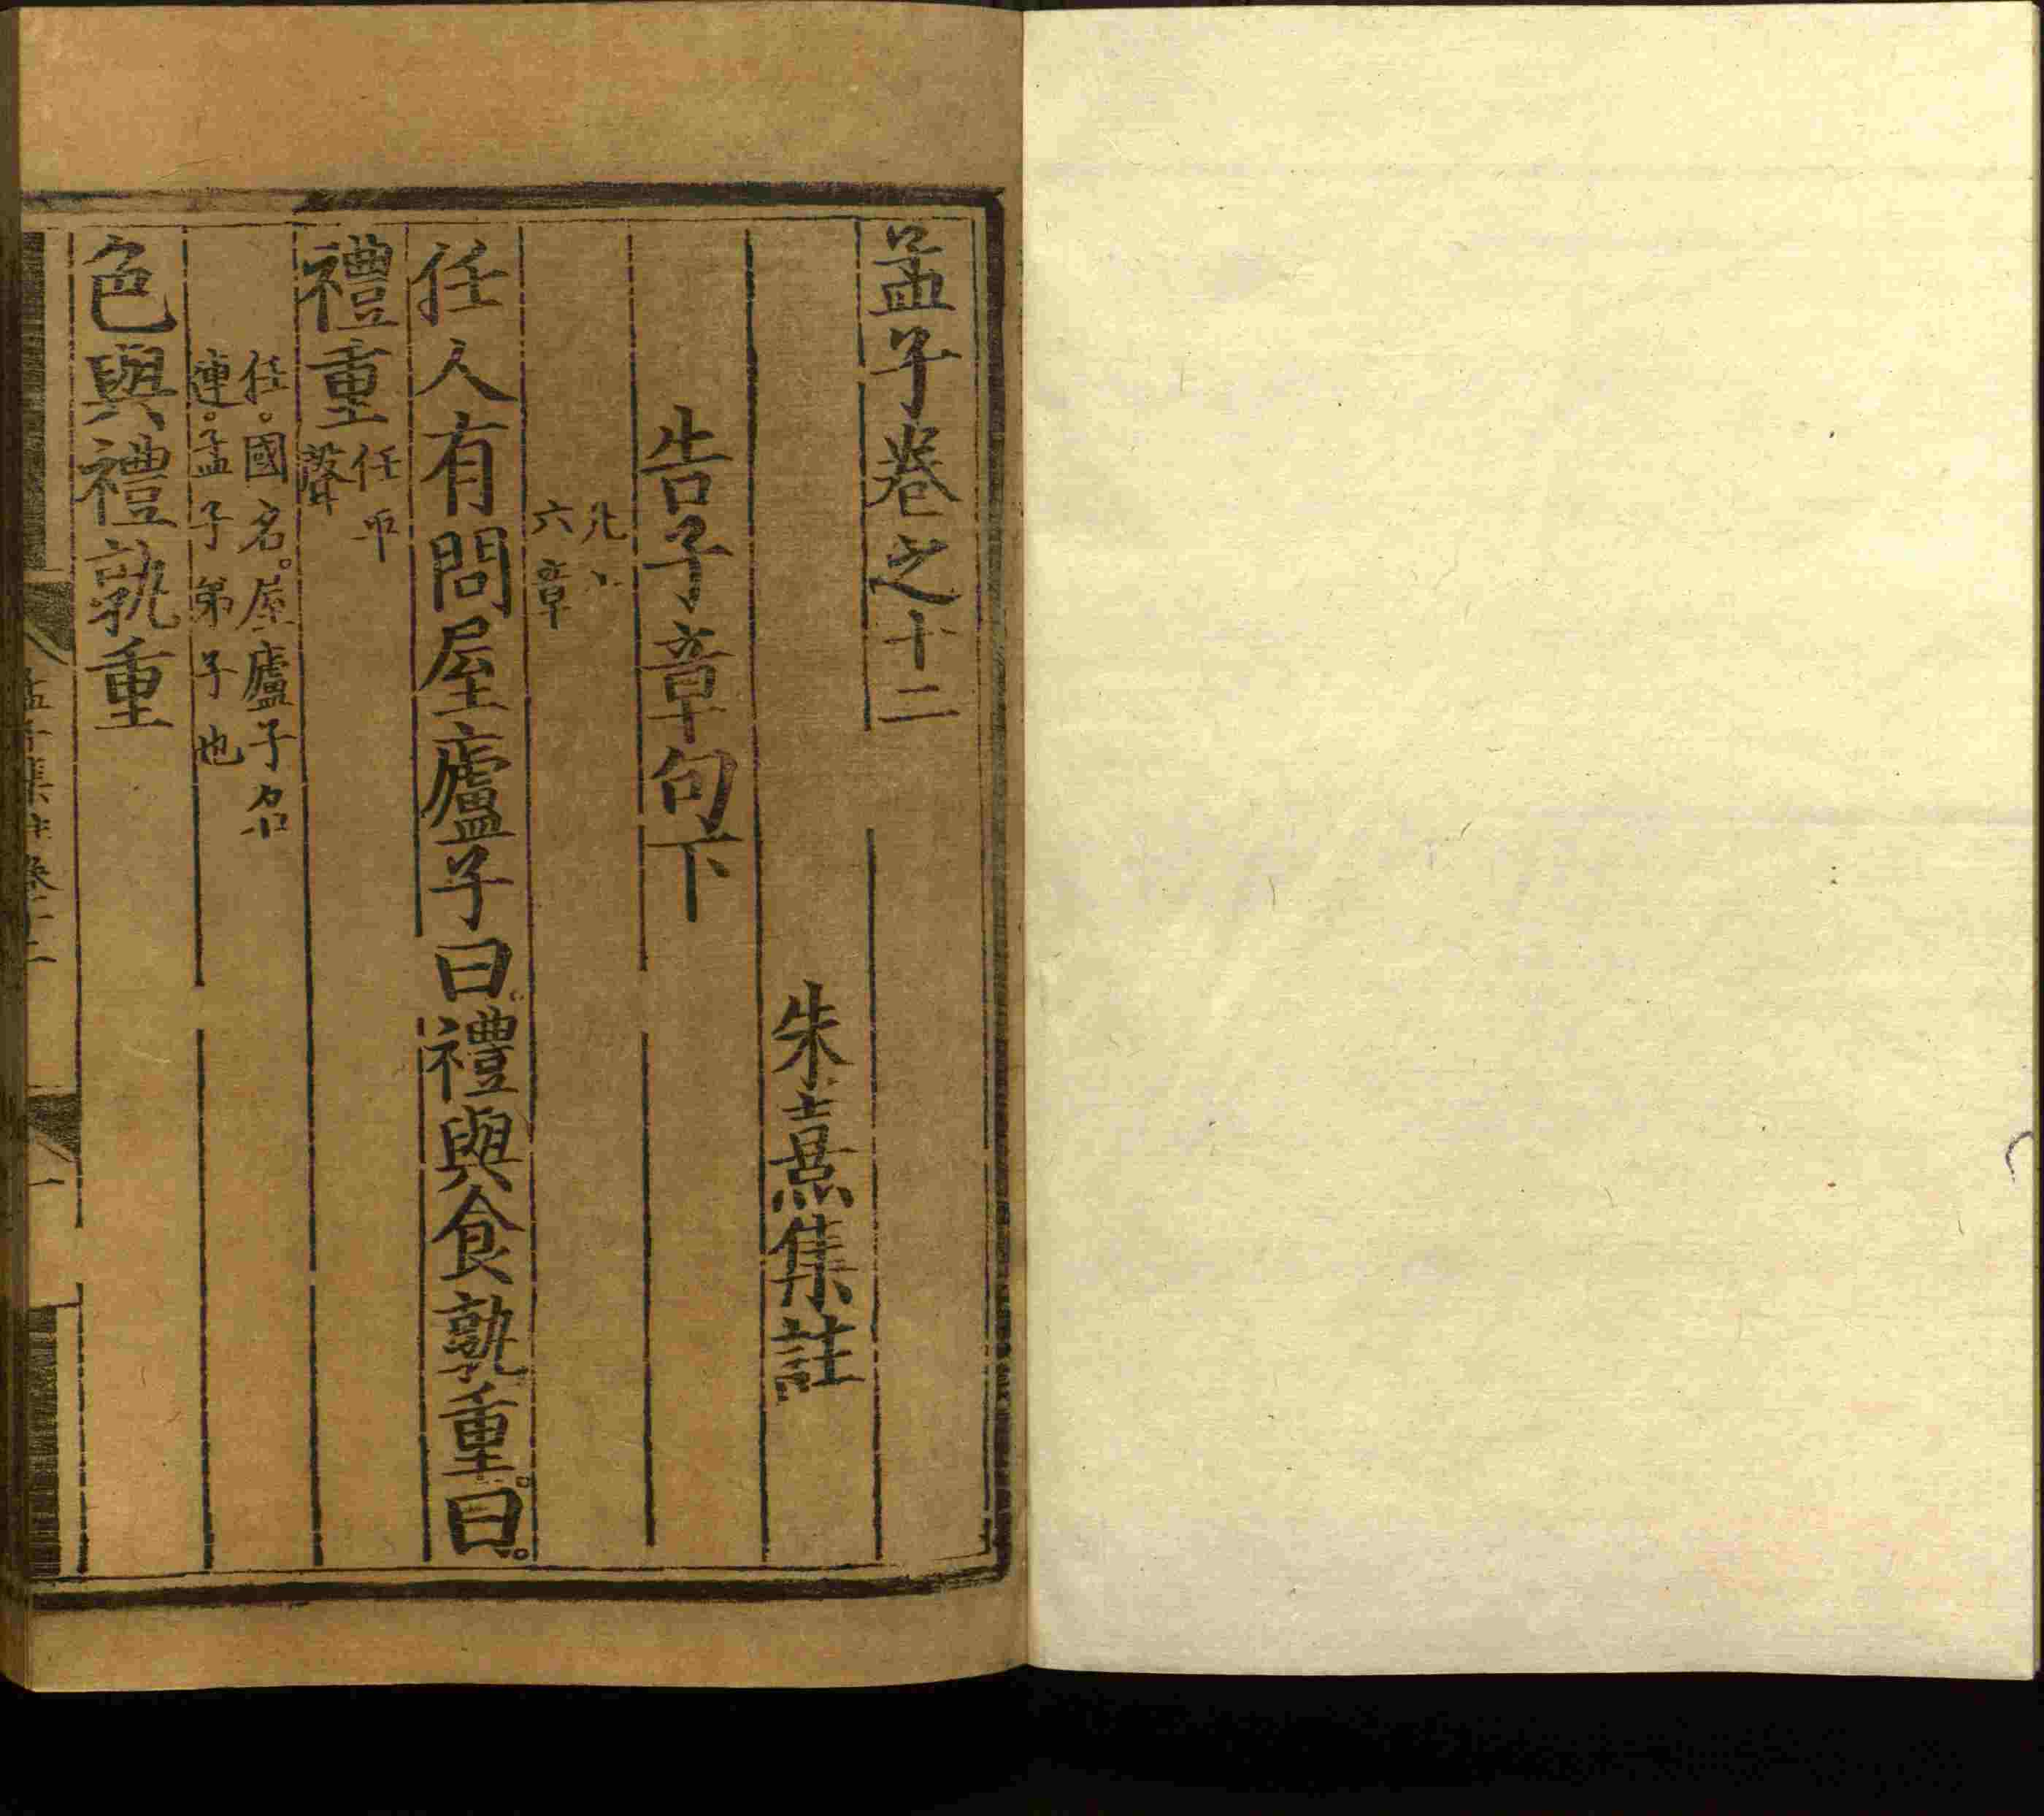 孟子卷之十二
朱熹集註
告子章句下
凡十
六章
任人有問屋廬子曰。禮與食孰重。曰。
禮重
任平
聲
任。國名。屋廬子名
連。孟子弟子也
色與禮孰重
孟子集註卷十二
一